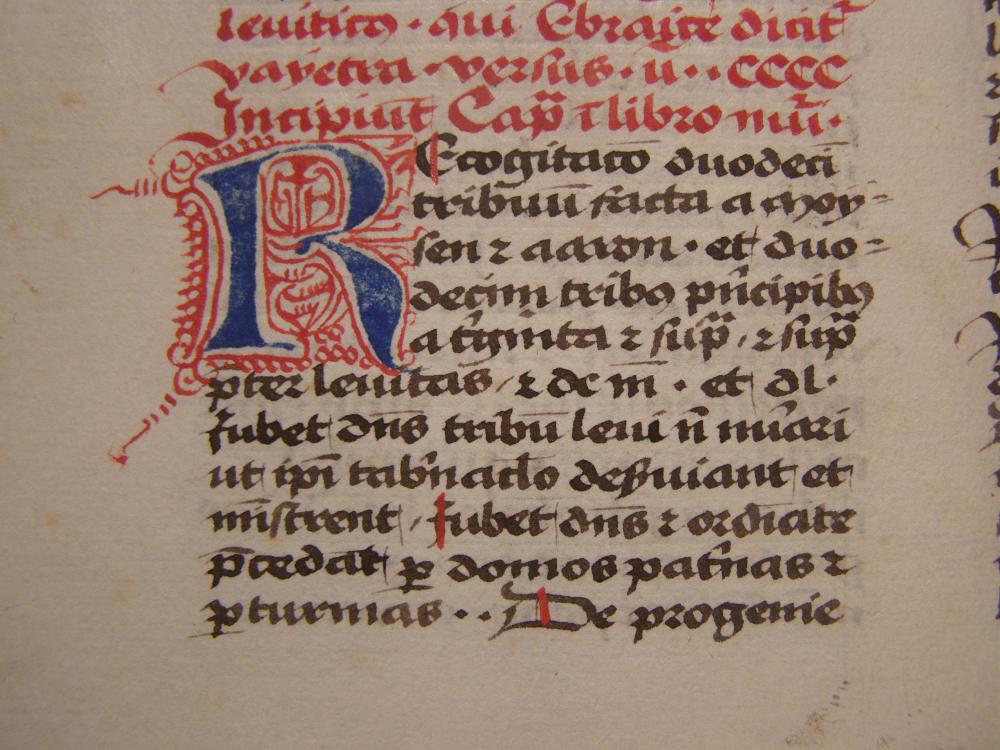 leuiticus · qui Ebrayce dicit᷑
vayecra · versus · ii · · cccc
Incipiūt Cap̄a ī libro nūi ·
REcogitatō duodecī
tribuū facta a moy=
sen ⁊ aaron · et duo=
decim tribꝰ pͥncipibꝰ
a tͥginta ⁊ sup̄ᵃ · ⁊ sup̄ᵃ
p̄ter leuitas · ⁊ dc iii · et dl ·
Iubet dn̄s tribū leui n̄ nūari
ut ipī tab̓naclo des̓uiant et
mīstrent / Iubet dn̄s ⁊ ordīate
p̄cedāt ꝑ domos pat̓nas ⁊
ꝑ turmas · · De progenie